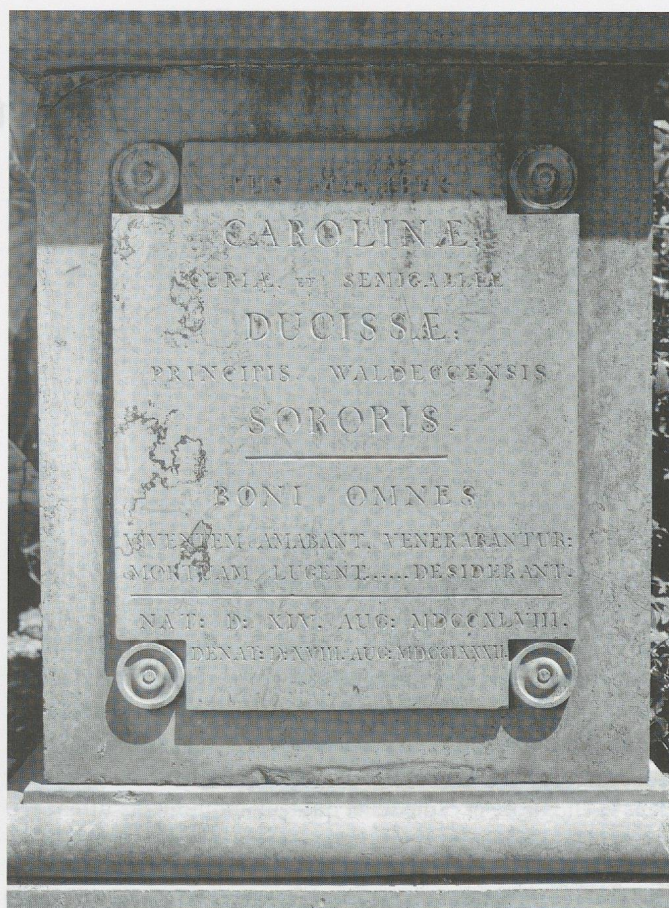 PIIS MANIBUS
CAROLINÆ.
CURIÆ. ET SEMIGALLIÆ
DUCISSÆ:
PRINCIPIS WALDECCENSIS
SORORIS.
BONI OMNES
VIVENTEM AMABANT. VENERABANTUR:
MORTUAM LUGENT.....DESIDERANT.
NAT: D: XIV. AUG: MDCCXLVIII.
DENAT: D: XVIII. AUG: MDCCLXXXII.